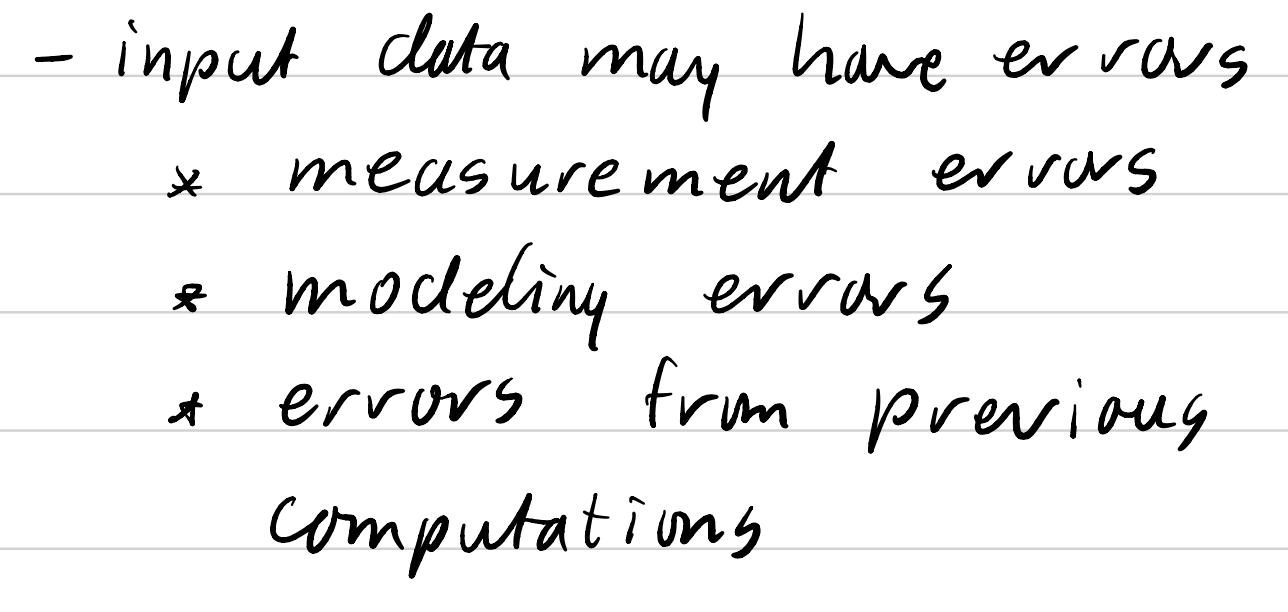 - input data may have errors
* measurement errors
* modeling errors
* errors from previous
computations